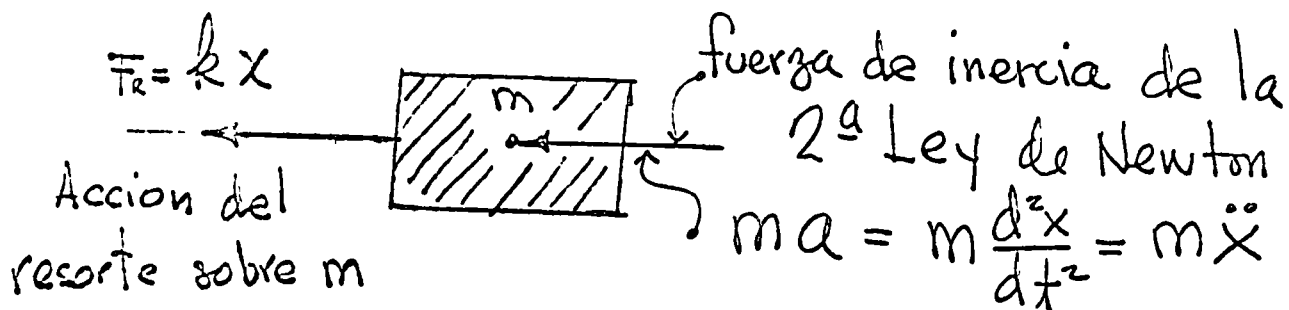 F_R = k x
Accion del
resorte sobre m
m
fuerza de inercia de la
2ª Ley de Newton
ma = m d²x/dt² = m ẍ